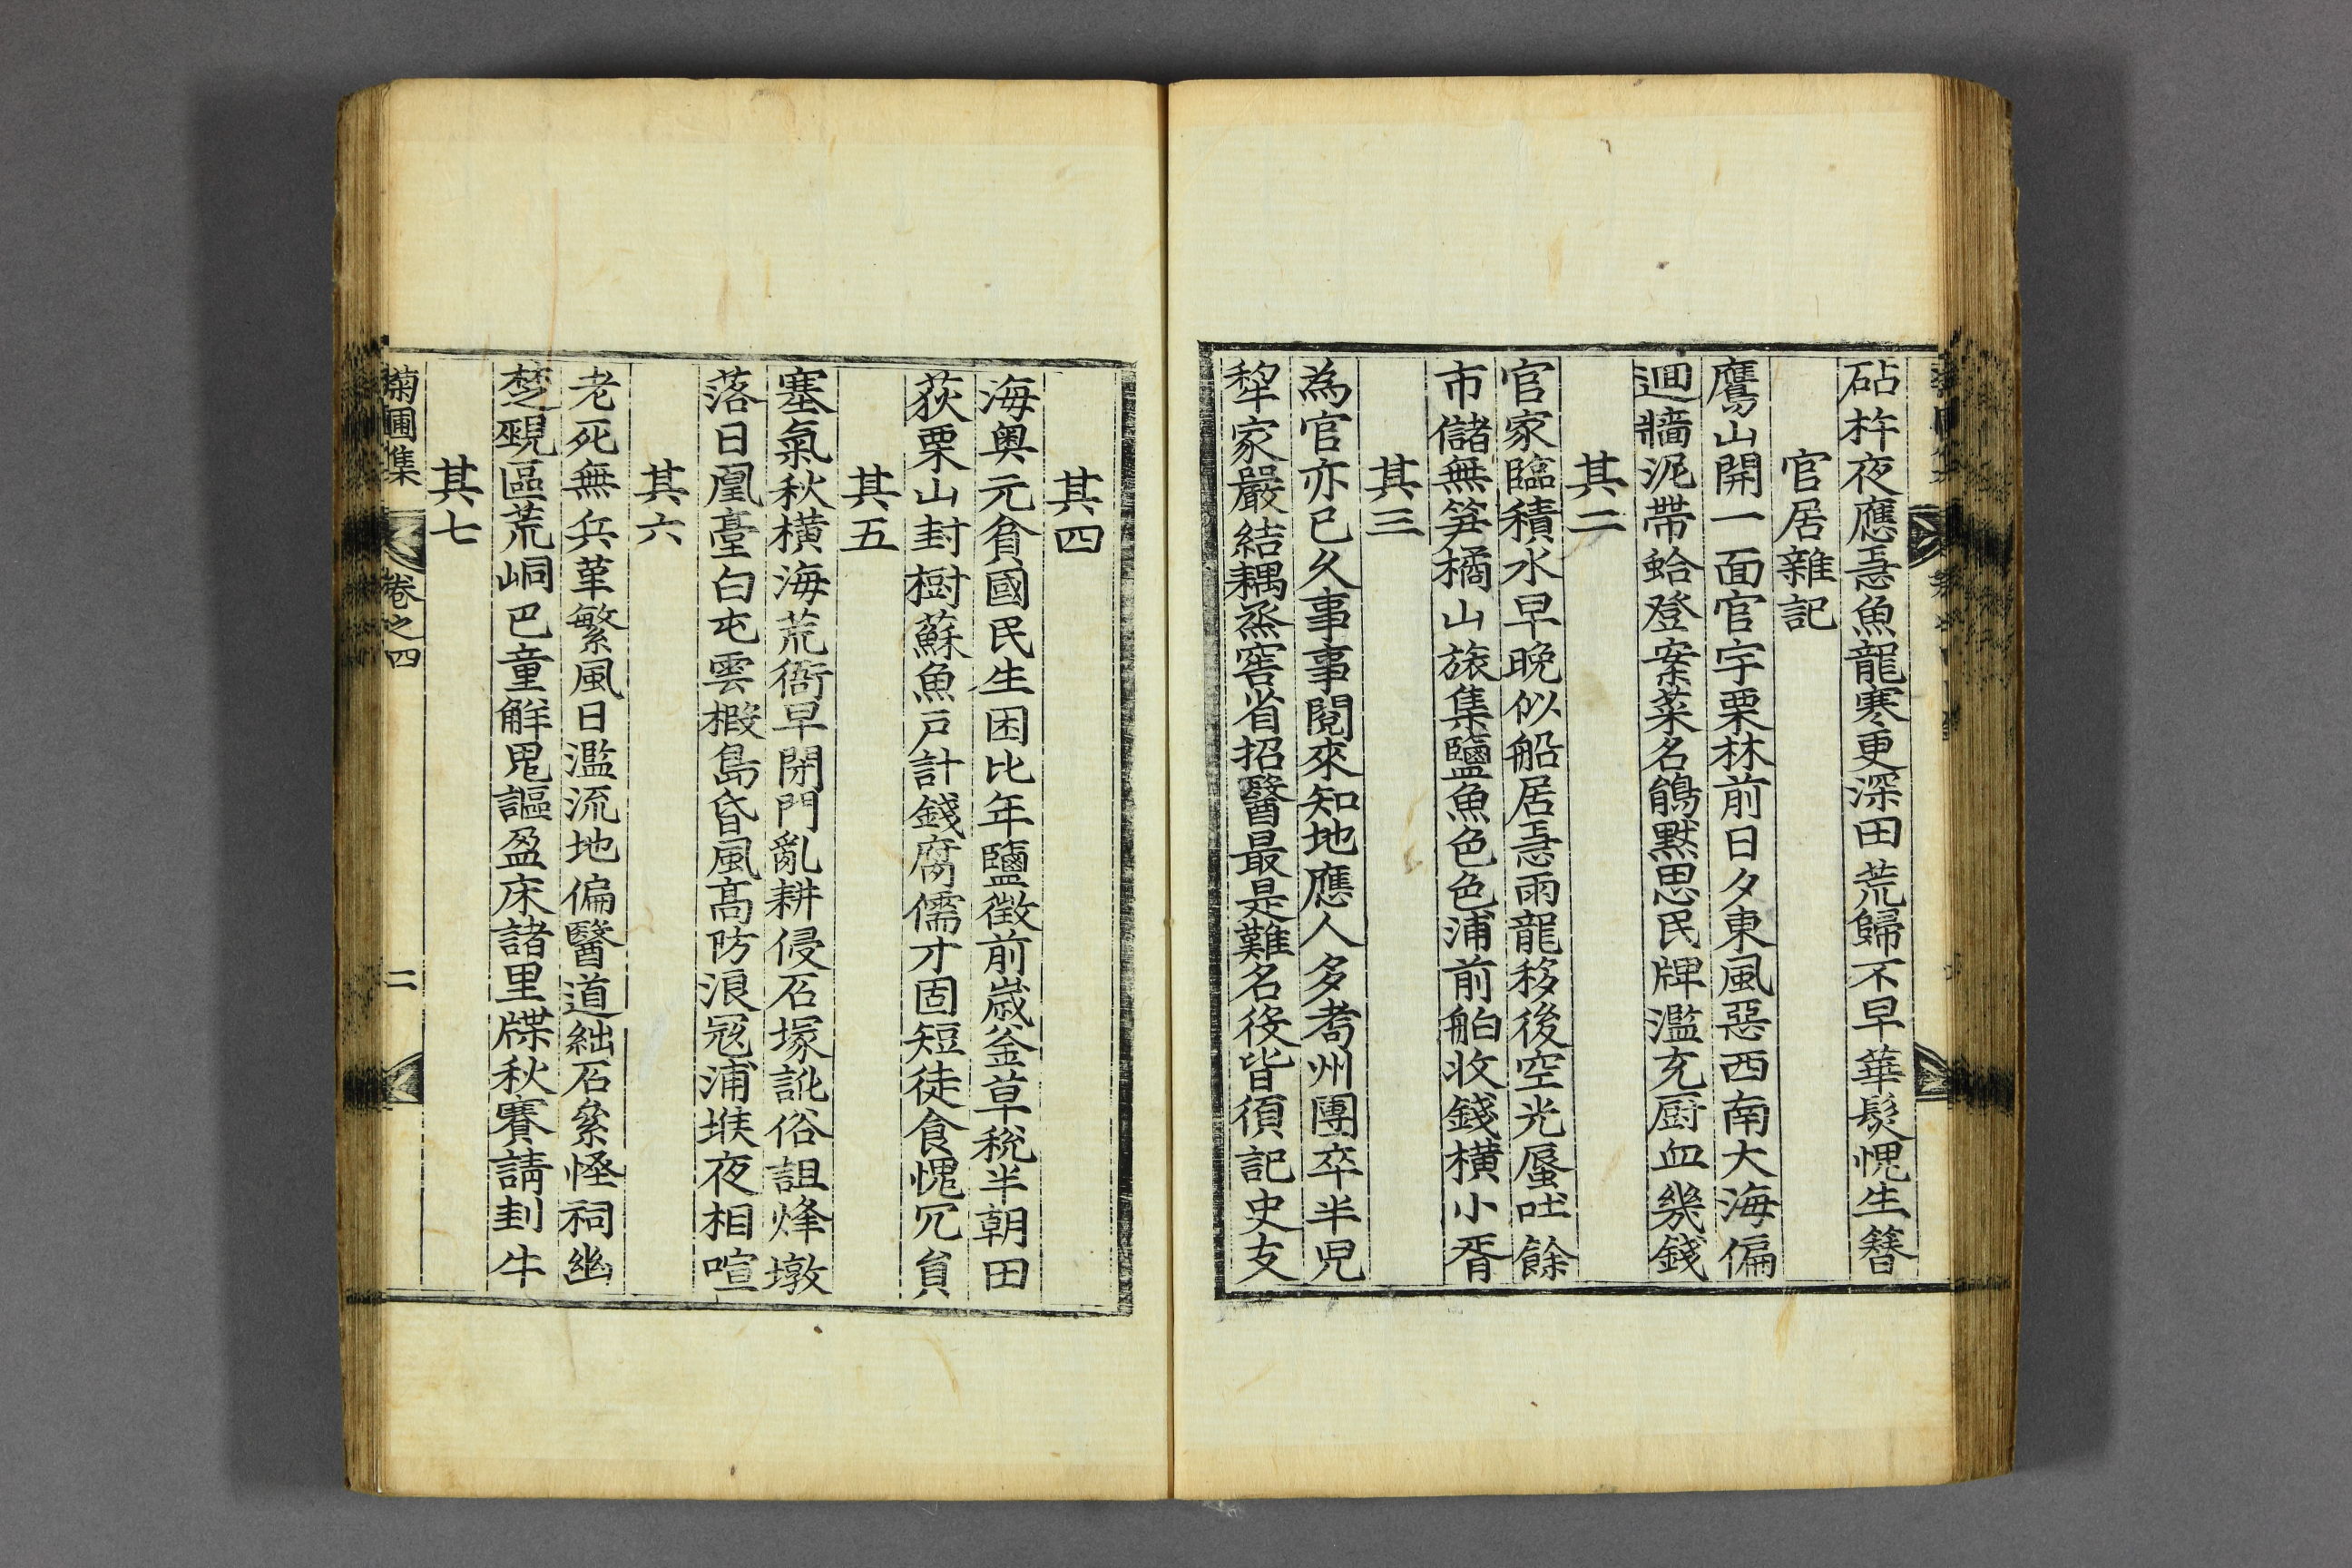 砧杵夜應急魚龍寒更深田荒歸不早華髮愧生簪
官居雜記
鷹山開一面官宇栗林前日夕東風惡西南大海偏
逥牆泥帶蛤登案菜名鵃默思民牌濫充厨血幾錢
其二
官家臨積水早晚似船居急雨龍移後空光蜃吐餘
市儲無笋橘山旅集鹽魚色色浦前舶收錢橫小胥
其三
為官亦已久事事閱來知地應人多耇州團卒半兒
犂家嚴結耦烝窖省招醫最是難名役皆須記史支
其四
海奥元貧國民生困比年鹽徵前歲釜草稅半朝田
荻栗山封樹蘇魚戶計錢腐儒才固短徒食愧冗員
其五
塞氣秋橫海荒衙早閉門亂耕侵石塚訛俗詛烽墩
落日凰臺白屯雲椵島昏風高防浪冦浦堠夜相喧
其六
老死無兵革繁風日濫流地偏醫道絀石絫怪祠幽
楚覡區荒峒巴童觧鬼謳盈床諸里牒秋賽請刲牛
其七
菊圃集 卷之四 二